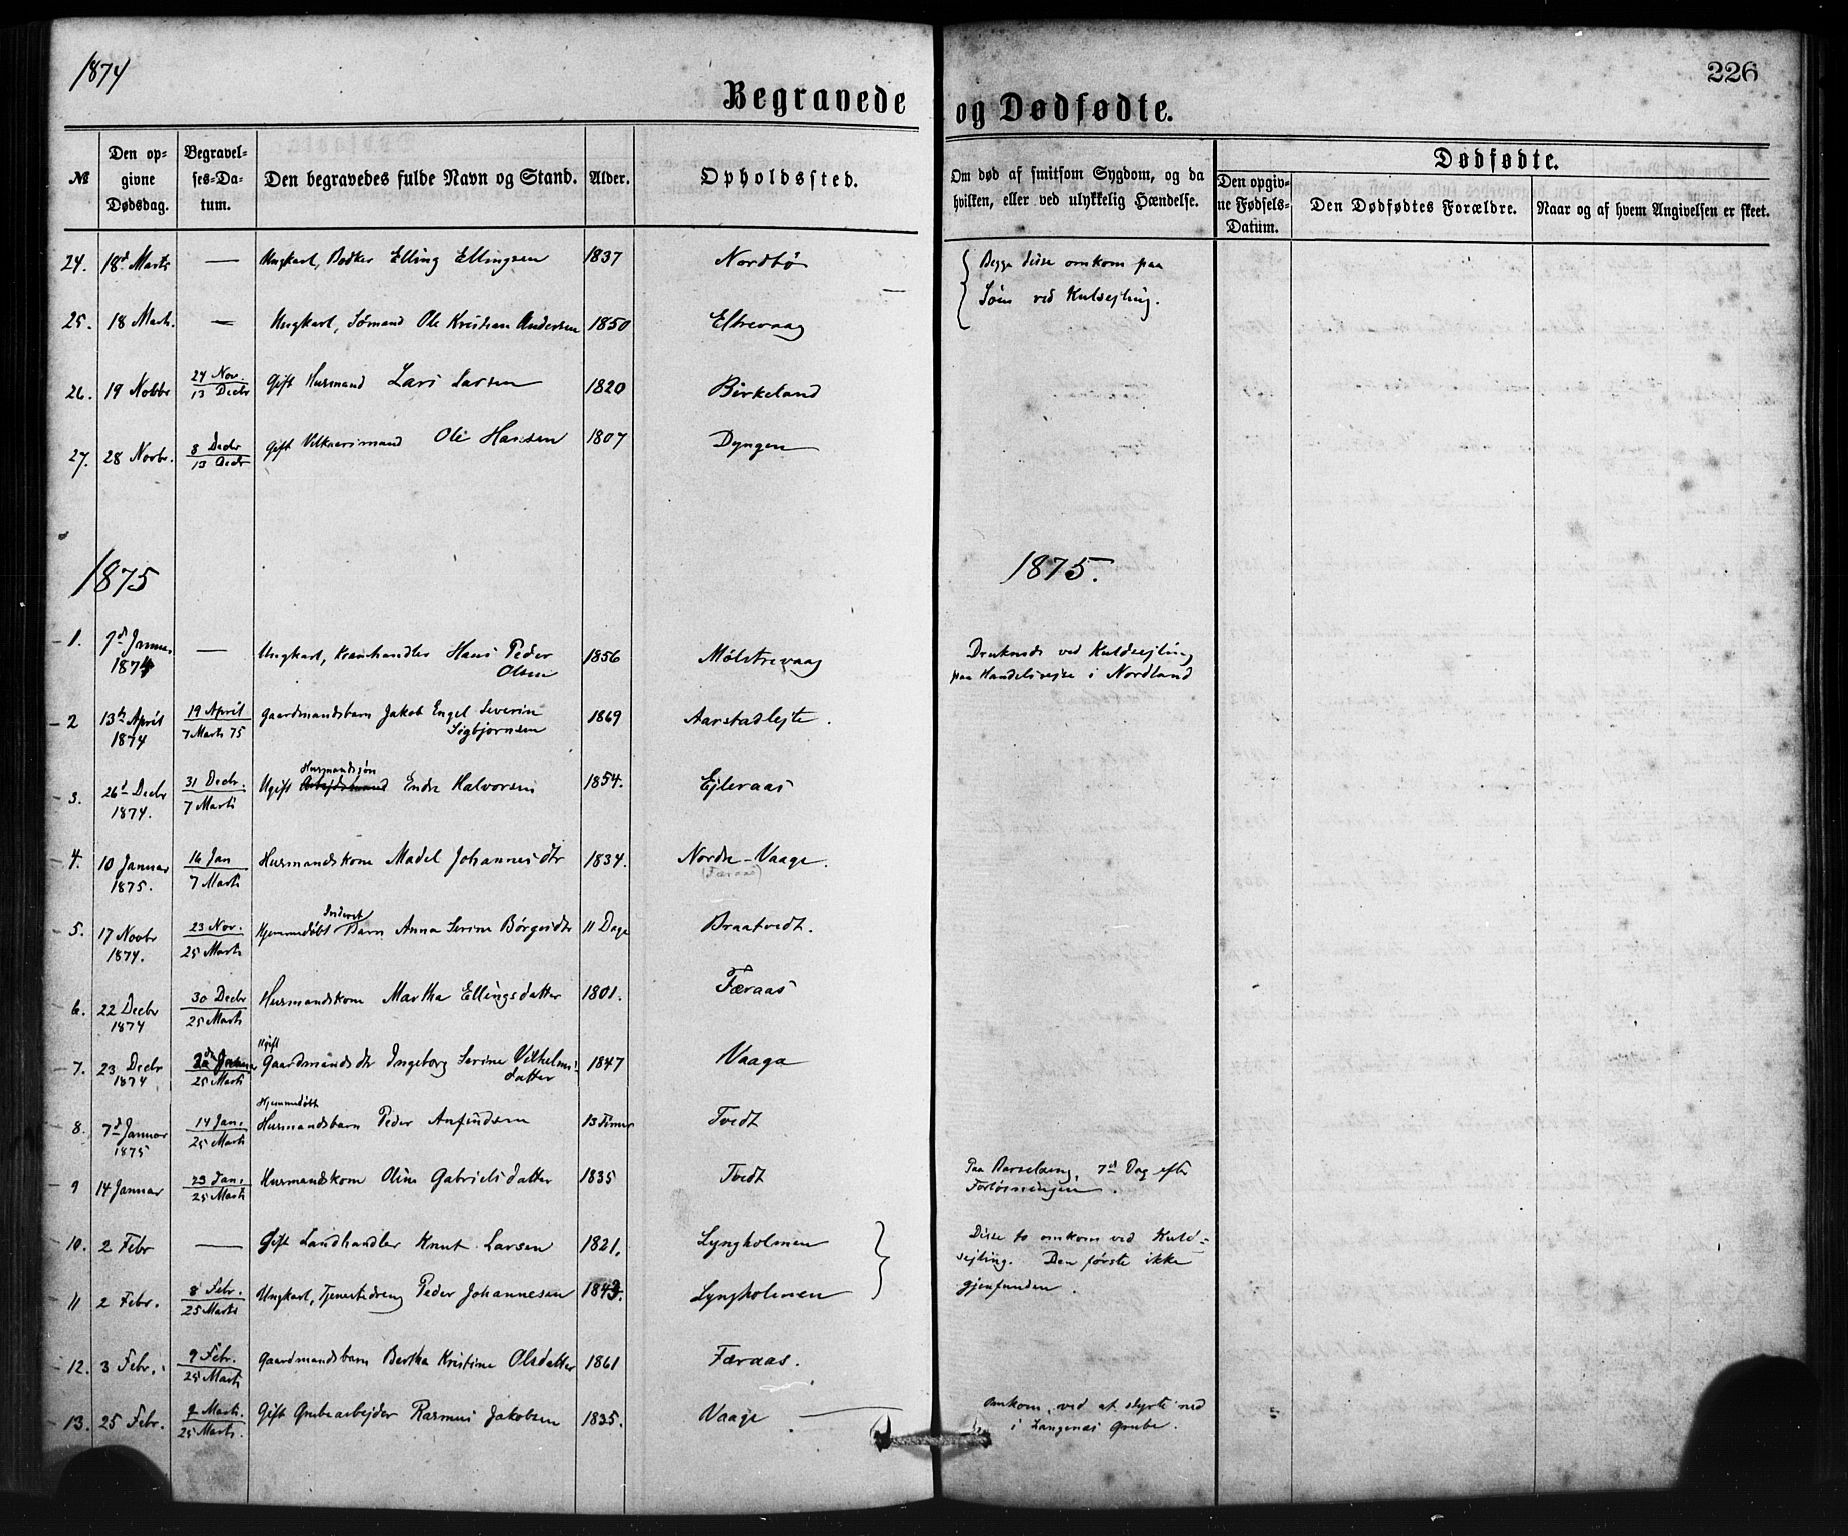 1874
226
Begravede og Dødfødte.
№ | Den opgivne Dødsdag. | Begravelses-Datum. | Den begravedes fulde Navn og Stand. | Alder. | Opholdssted. | Om død af smitsom Sygdom, og da hvilken, eller ved ulykkelig Hændelse. | Dødfødte. | Den opgivne Fødsels-Datum. | Den Dødfødtes Forældre. | Naar og af hvem Angivelsen er skeet.
24. 18d Marts — Ungkarl, Bødker Elling Ellingsen 1837 Nordbø { Begge disse omkom paa
Søen ved Kulsejling.
25. 18 Marts. — Ungkarl, Sømand Ole Kristian Andersen 1850 Eltrevaag
26. 19 Novbr 24 Nov. / 13 Decbr Gift Husmand Lars Larsen 1820 Birkeland
27. 28 Novbr. 8 Decbr / 13 Decbr Gift Vilkaarsmand Ole Hansen 1807 Dyngen
1875 1875.
1. 7d Januar 1874 — Ungkarl, Kramhandler Hans Peder Olsen 1856 Mølstrevaag Druknede ved Kuldsejling
paa Handelsrejse i Nordland
2 13de April 1874 19 April / 7 Marts 75 Gaardmandsbarn Jakob Engel Severin Sigbjørnsen 1869 Aarstadlejte.
3. 26d Decbr 1874. 31 Decbr. / 7 Marts Ugift Husmandssøn Endre Halvorsen 1854. Ejleraas
4. 10 Januar 1875. 16 Jan / 7 Marts Husmandskone Madel Johannesdtr 1834. Nordre-Vaage.
(Færaas)
5. 17 Novbr 1874. 23 Nov. / 25 Marts Hjemmedøbt Inderst Barn Anna Serine Børgesdtr 11 Dage Braatvedt.
6. 22 Decbr 1874 30 Decbr / 25 Marts Husmandskone Martha Ellingsdatter 1801. Færaas
7. 23 Decbr 1874 2d Januar / 25 Marts Ugift Gaardmandsdtr Ingeborg Serine Vilhelmsdatter 1847 Vaaga
8. 7d Januar 1875 14 Jan. / 25 Marts Hjemmedøbt Husmandsbarn Peder Anfindsen 13 Timer Tvedt
9 14 Januar 23 Jan. / 25 Marts Husmandskone Oline Gabrielsdatter 1835 Tvedt Paa Barselseng, 7d Dag efter
Forløsningen.
10. 2 Febr — Gift Landhandler Knut Larsen 1821. Lyngholmen } Disse to omkom ved Kuld-
sejling. Den første ikke
gjenfunden.
11 2 Febr. 8 Febr. / 25 Marts Ungkarl, Tjenestedreng Peder Johannesen 1843. Lyngholmen
12. 3 Febr. 9 Febr. / 25 Marts Gaardmandsbarn Bertha Kristine Olsdatter 1861 Færaas.
13. 25 Febr. 2 Marts. / 25 Marts. Gift Grubearbejder Rasmus Jakobsen 1835. Vaage — Omkom, ved at styrte ned
i Langenæs Grube.